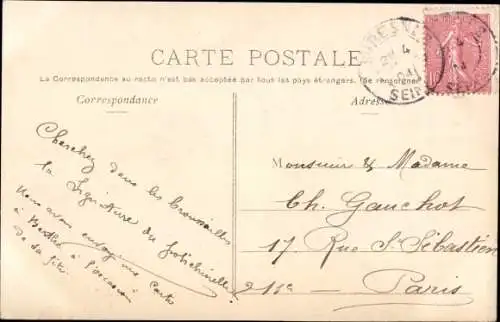 CARTE POSTALE
La Correspondance au recto n'est pas acceptée par tous les pays étrangers. (Se renseigner
Correspondance
Adresse
SEINE
Cherchez dans les broussailles
la signature du
Nous avons envoyé une carte
à Berthe à l'occasion
de sa fête
Monsieur & Madame
Ch. Gauchot
17 Rue St Sébastien
Paris